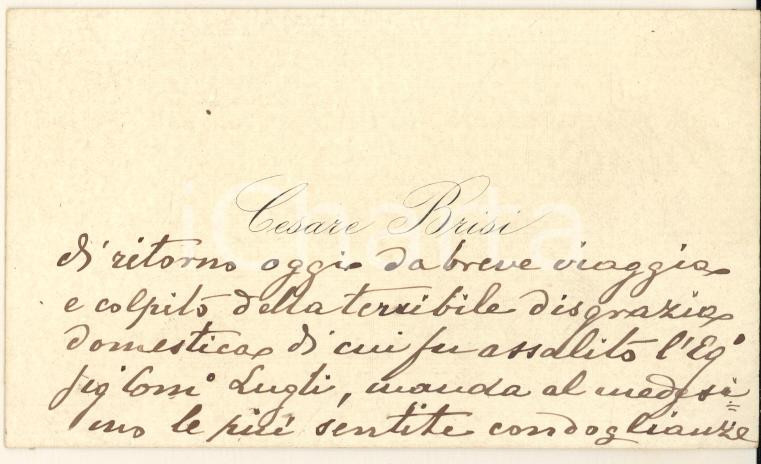 Cesare Brisi
di ritorno oggi da breve viaggio
e colpito della terribile disgrazia
domestica di cui fu assalito l'Eg°
Sig Com° Lugli, manda al medesi=
mo le più sentite condoglianze
iCharta